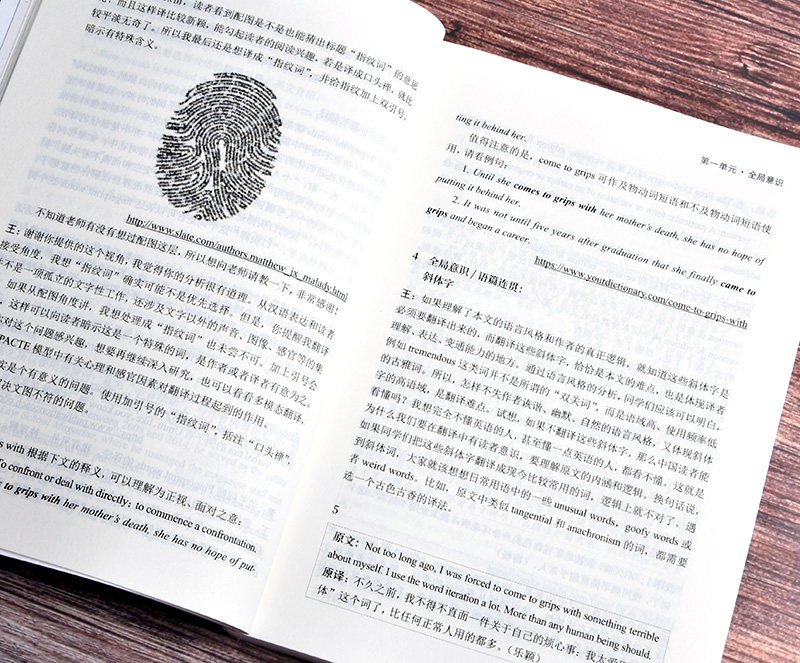 读者看到配图是不是也能猜出标题“指纹词”的意思
呢，而且这样译比较新颖，能勾起读者的阅读兴趣，若是译成口头禅，就比
较平淡无奇了。所以我最后还是想译成“指纹词”，并给指纹加上双引号，
暗示有特殊含义。
http://www.slate.com/authors.matthew_jx_malady.html
不知道老师有没有想过配图这层，所以想向老师请教一下，非常感谢！
王：谢谢你提供的这个视角，我觉得你的分析很有道理。从汉语表达和读者
接受角度，我想“指纹词”确实可能不是优先选择。但是，你提醒我翻译
不是一项孤立的文字性工作，还涉及文字以外的声音、图像、感官等的集
如果从配图角度讲，我想处理成“指纹词”也未尝不可。加上引号会
，这样可以向读者暗示这是一个特殊的词，是作者或者译者有意为之。
对这个问题感兴趣，想要再继续深入研究，也可以看看多模态翻译，
PACTE 模型中有关心理和感官因素对翻译过程起到的作用。
实是个有意义的问题。使用加引号的“指纹词”，括注“口头禅”，
决文图不符的问题。
s with 根据下文的释义，可以理解为正视、面对之意：
To confront or deal with directly; to commence a confrontation.
s to grips with her mother's death, she has no hope of put-
第一单元·全局意识
ting it behind her.
值得注意的是，come to grips 可作及物动词短语和不及物动词短语使
用，请看例句：
1. Until she comes to grips with her mother's death, she has no hope of
putting it behind her.
2. It was not until five years after graduation that she finally came to
grips and began a career.
https://www.yourdictionary.com/come-to-grips-with
4 全局意识 / 语篇连贯：
斜体字
王：如果理解了本文的语言风格和作者的真正逻辑，就知道这些斜体字是
必须要翻译出来的，而翻译这些斜体字，恰恰是本文的难点，也是体现译者
理解、表达、变通能力的地方。通过语言风格的分析，同学们应该可以明白，
例如 tremendous 这类词并不是所谓的“双关词”，而是语域高、使用频率低
的古雅词。所以，怎样不失作者诙谐、幽默、自然的语言风格，又体现斜体
字的高语域，是翻译难点。试想，如果不翻译这些斜体字，那么中国读者能
看懂吗？我想完全不懂英语的人，甚至懂一点英语的人，都看不懂。这就是
为什么我们要在翻译中有读者意识，要理解原文的内涵和逻辑。换句话说，
如果同学们把这些斜体字翻译成现今比较常用的词，逻辑上就不对了。遇
到斜体词，大家就该想想日常用语中的一些 unusual words, goofy words 或
者 weird words。比如，原文中类似 tangential 和 anachronism 的词，都需要
选一个古色古香的译法。
5
原文：Not too long ago, I was forced to come to grips with something terrible
about myself. I use the word iteration a lot. More than any human being should.
原译：不久之前，我不得不直面一件关于自己的烦心事：我太爱
体”这个词了，比任何正常人用的都多。（乐颖）